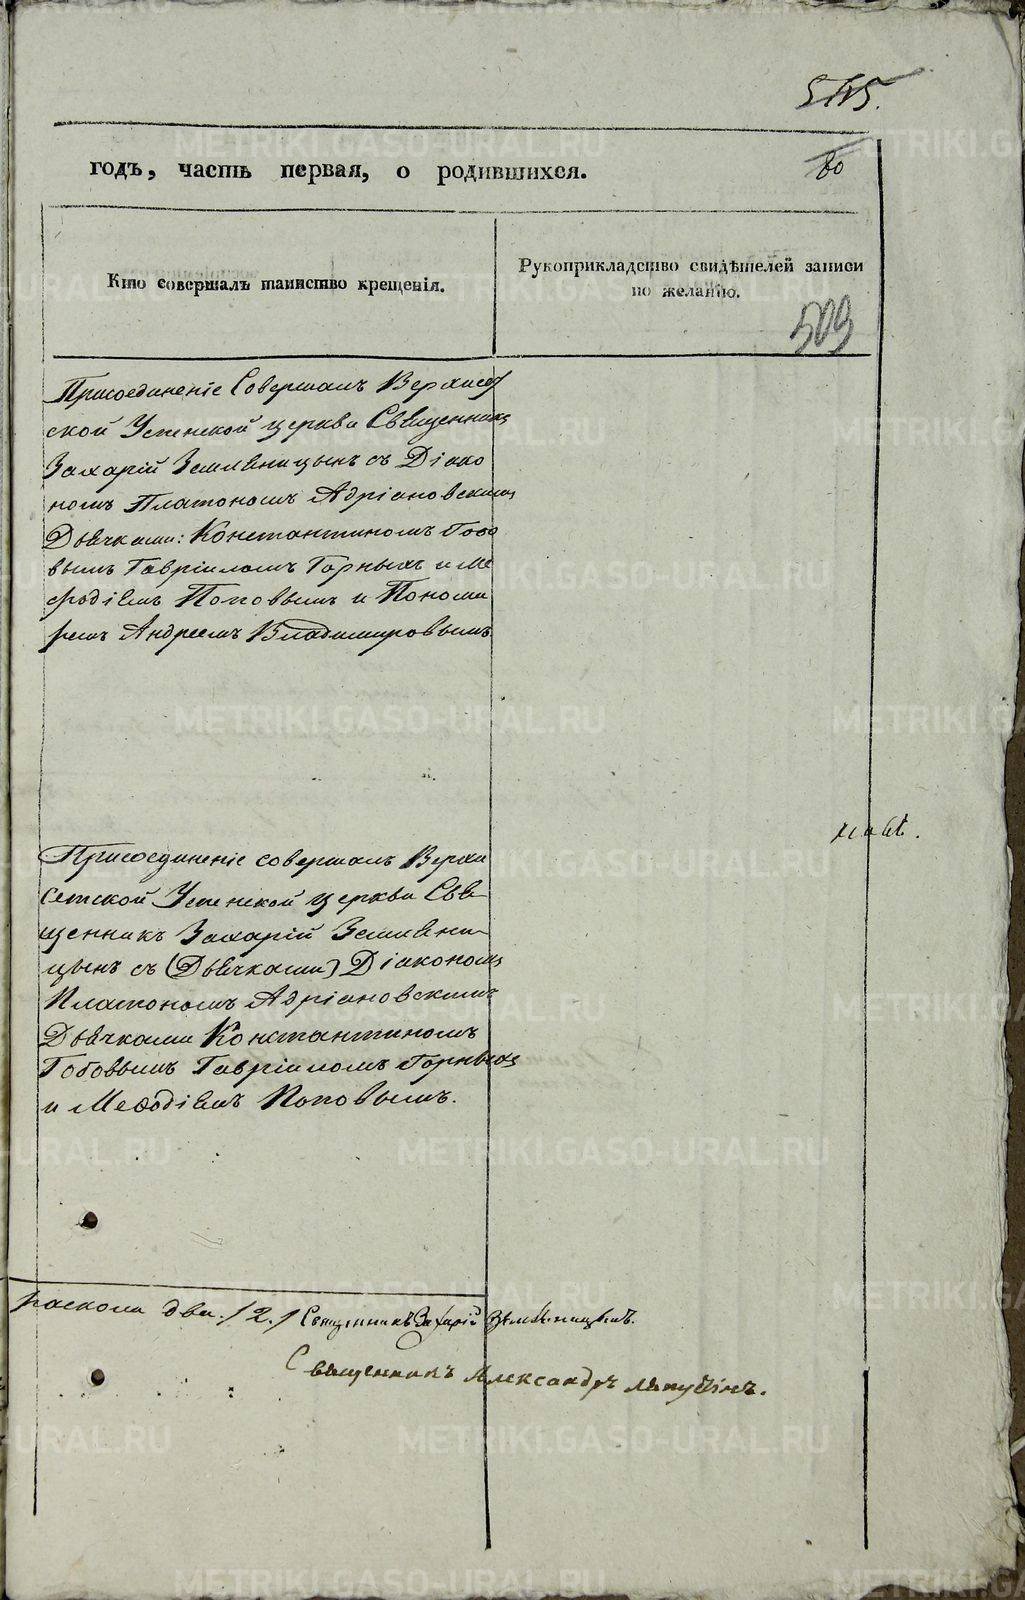 545.
годъ, часть первая, о родившихся.
80
Кто совершалъ таинство крещенія.
Рукоприкладство свидѣтелей записи
по желанію.
509
Присоединеніе Совершалъ Верхисет
ской Успенской церкви Священникъ
Захарій Земляницынъ съ Діако
номъ Платономъ Адріановскимъ
Дьячками: Константиномъ Гобо
вымъ Гавріиломъ Горныхъ и Ме
фодіемъ Поповымъ и Понома
ремъ Андреемъ Владимировымъ
Присоединеніе совершалъ Верхи
сетской Успенской церкви Свя
щенникъ Захарій Земляни
цынъ съ (Дьячками) Діакономъ
Платономъ Адріановскимъ
Дьячками Константиномъ
Гобовымъ Гавріиломъ Горныхъ
и Меѳодіемъ Поповымъ.
раскола два. /2./ Священникъ Захарій Земляницынъ.
Священникъ Александръ Ляпустинъ.
METRIKI.GASO-URAL.RU